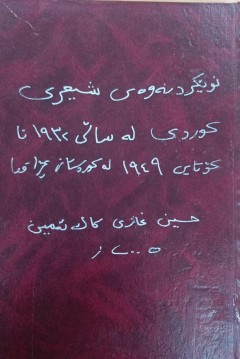 نوێکردنەوەی شیعری
کوردی لە ساڵی ١٩٣٢ تا
کۆتایی ١٩٤٩ لە کوردستانی عێراقدا
حسین غازی کاک ئەمین
٢٠٠٥ ز